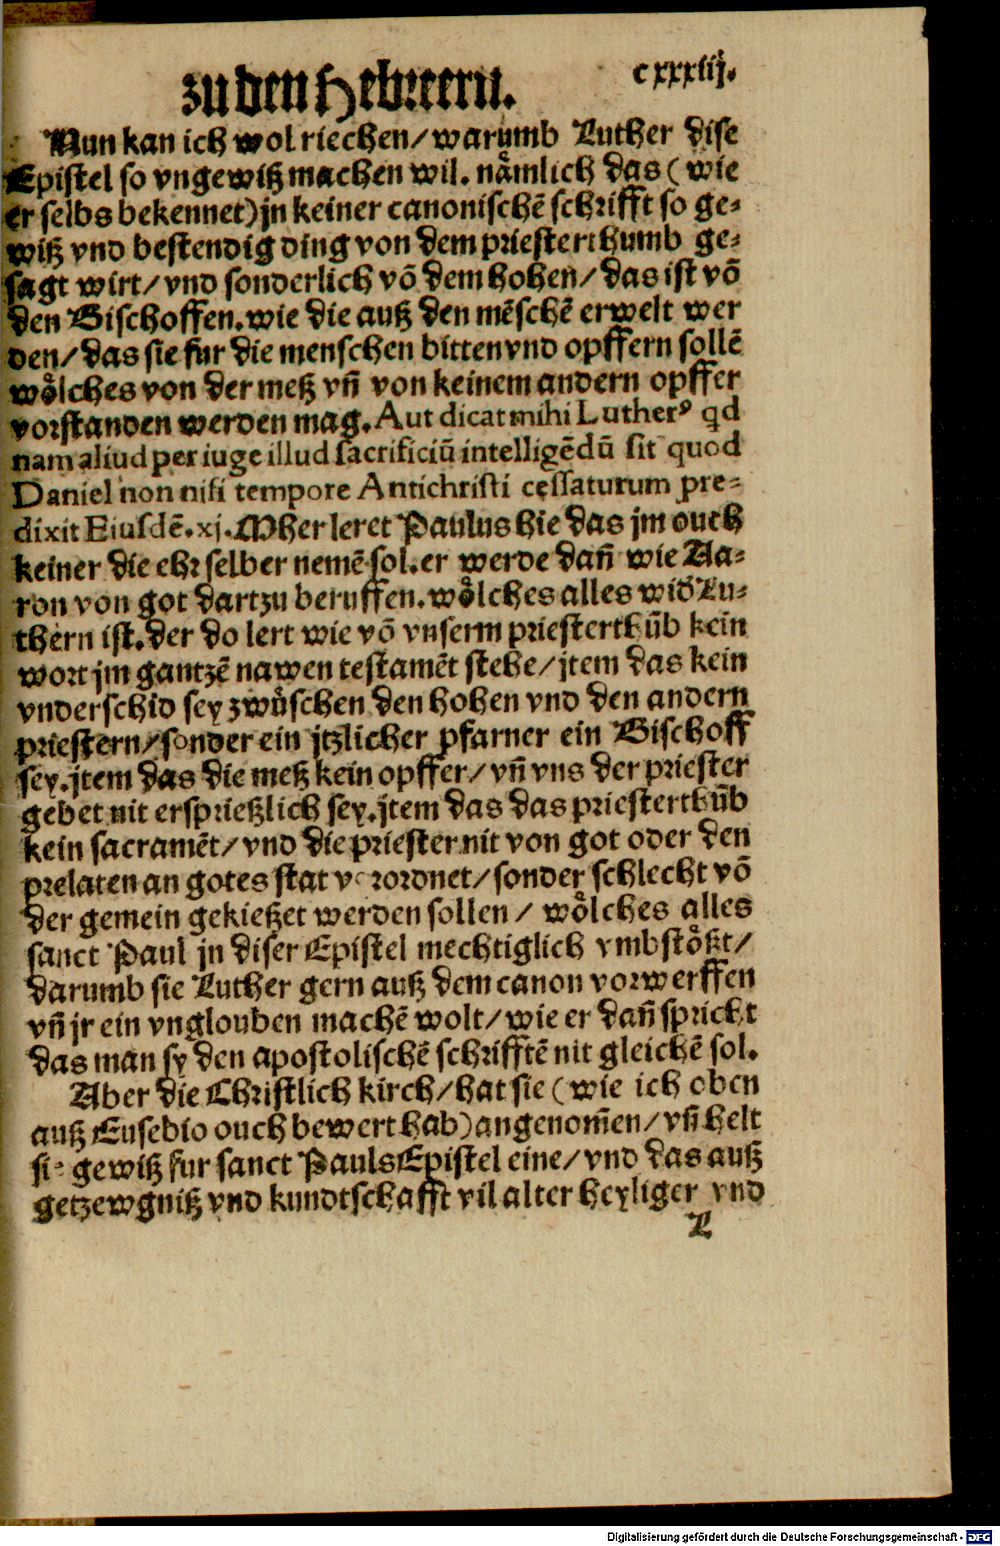 zu den Hebreern.
cxxxiij.
Nun kan ich wol riechen/ warumb Luther dise
Epistel so vngewiß machen wil. nämlich das (wie
er selbs bekennet) jn keiner canonischē schrifft so ge⸗
wiß vnd bestendig ding von dem priesterthumb ge⸗
sagt wirt/ vnd sonderlich vō dem hohen/ das ist vō
den Bischoffen. wie die auß den mēschē erwelt wer
den/ das sie fur die menschen bitten vnd opffern sollē
wölches von der meß vn̄ von keinem andern opffer
vorstanden werden mag. Aut dicat mihi Lutherꝰ qd
nam aliud per iuge illud sacrificiū intelligēdū sit quod
Daniel non nisi tempore Antichristi cessaturum pre⸗
dixit Eiusdē. xj. Mher leret Paulus hie das jm ouch
keiner die ehr selber nemē sol. er werde dan̄ wie Aa⸗
ron von got dartzu beruffen. wölches alles wid Lu⸗
thern ist. der do lert wie vō vnserm priesterthūb kein
wort jm gantzē nawen testamēt stehe/ jtem das kein
vnderschid sey zwüschen den hohen vnd den andern
priestern/ sonder ein jtzlicher pfarner ein Bischoff
sey. jtem das die meß kein opffer/ vn̄ vns der priester
gebet nit ersprießlich sey. jtem das das priesterthūb
kein sacramēt/ vnd die priester nit von got oder den
prelaten an gotes stat verordnet/ sonder schlecht vō
der gemein gekießet werden sollen/ wölches alles
sanct Paul jn diser Epistel mechtiglich vmbstößt/
darumb sie Luther gern auß dem canon vorwerffen
vn̄ jr ein vnglouben machē wolt/ wie er dan̄ spricht
das man sy den apostolischē schrifftē nit gleichē sol.
Aber die Christlich kirch/ hat sie (wie ich oben
auß Eusebio ouch bewert hab) angenom̄en/ vn̄ helt
sie gewiß fur sanct Pauls Epistel eine/ vnd das auß
getzewgniß vnd kundtschafft vil alter heyliger vnd
L
Digitalisierung gefördert durch die Deutsche Forschungsgemeinschaft - DFG